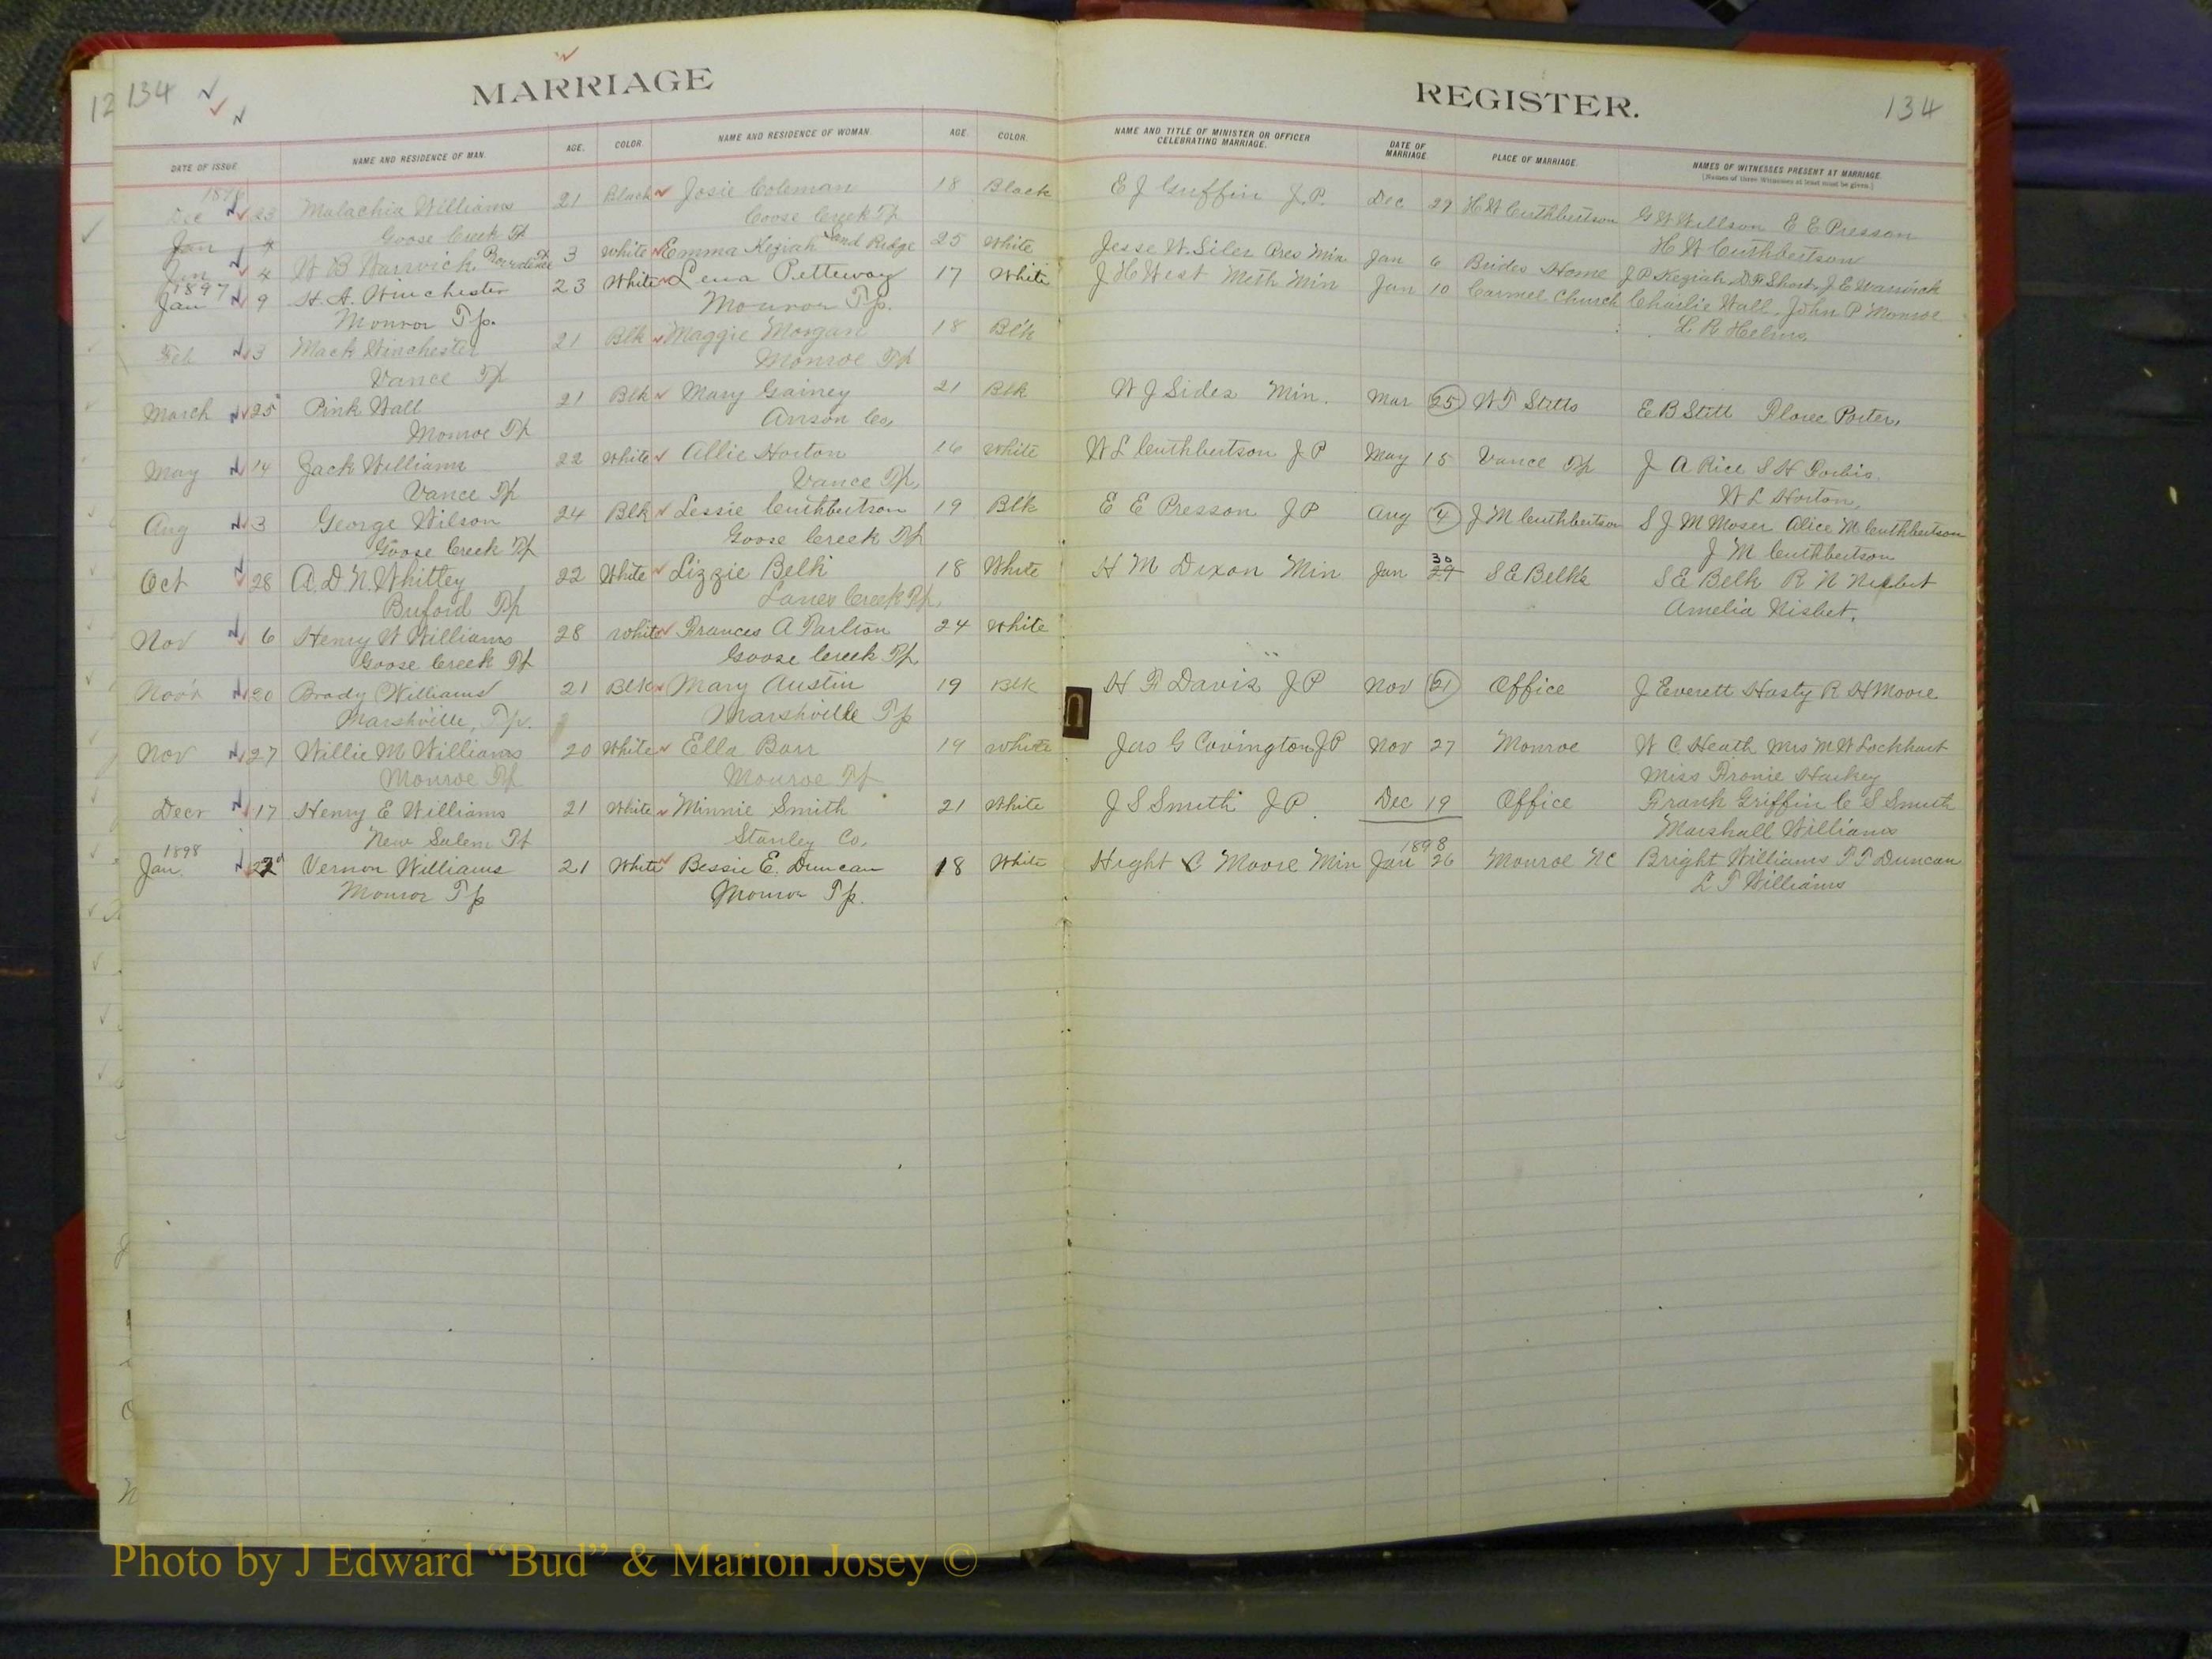 12 134
MARRIAGE REGISTER. 134
DATE OF ISSUE. NAME AND RESIDENCE OF MAN. AGE. COLOR. NAME AND RESIDENCE OF WOMAN. AGE. COLOR. NAME AND TITLE OF MINISTER OR OFFICER CELEBRATING MARRIAGE. DATE OF MARRIAGE. PLACE OF MARRIAGE. NAMES OF WITNESSES PRESENT AT MARRIAGE.
[Names of three Witnesses at least must be given.]
1896
Dec 23 Malachia Williams 21 Black Josie Coleman 18 Black E J Griffin J.P. Dec 29 H W Cuthbertson G W Willson E E Presson
Goose Creek Tp Goose Creek Tp H W Cuthbertson
Jan 4
Jan 4 W B Warwick Providence Tp 3 White Emma Keziah Sand Ridge 25 White Jesse W. Siler Pres Min Jan 6 Brides Home J P Keziah, D F Short, J E Warwick
1897
Jan 9 H. A. Winchester 23 White Lena Petteway 17 White J H West Meth Min Jan 10 Carmel Church Charlie Wall, John P Monroe
Monroe Tp. Monroe Tp. L R Helms
Feb 3 Mack Winchester 21 Blk Maggie Morgan 18 Blk
Vance Tp Monroe Tp
March 25 Pink Wall 21 Blk Mary Gainey 21 Blk W J Sides Min. Mar 25 W T Stitts E B Stitt Porter,
Monroe Tp Anson Co,
May 14 Jack Williams 22 White Allie Horton 16 White W L Cuthbertson J P May 15 Vance Tp J A Rice S H
Vance Tp Vance Tp, W L Horton,
Aug 3 George Wilson 24 Blk Lessie Cuthbertson 19 Blk E E Presson J P Aug 4 J M Cuthbertson S J M Moser Alice M Cuthbertson
Goose Creek Tp Goose Creek Tp J M Cuthbertson
Oct 28 A. D. N. Whitley 22 White Lizzie Belk 18 White H M Dixon Min Jan 30 29 S E Belk's S E Belk R N Nisbet
Buford Tp Lanes Creek Tp, Amelia Nisbet,
Nov 6 Henry W Williams 28 White Frances A Tarlton 24 White
Goose Creek Tp Goose Creek Tp,
Nov'r 20 Brody Williams 21 Blk Mary Austin 19 Blk H F Davis J P Nov 21 Office J Everett Hasty R H Moore
Marshville, Tp. Marshville Tp
Nov 27 Willie M Williams 20 White Ella Barr 19 white Jas G Covington J P Nov 27 Monroe W C Heath Mrs M W Lockhart
Monroe Tp Monroe Tp Miss Fronie Harkey
Decr 17 Henry E Williams 21 White Minnie Smith 21 White J S Smith J P. Dec 19 Office Frank Griffin C S Smith
New Salem Tp Stanley Co, Marshall Williams
1898 1898
Jan. 22 Vernon Williams 21 White Bessie E. Duncan 18 White Hight C Moore Min Jan 26 Monroe NC Bright Williams T. T Duncan
Monroe Tp Monroe Tp. L T Williams
Photo by J Edward “Bud” & Marion Josey ©